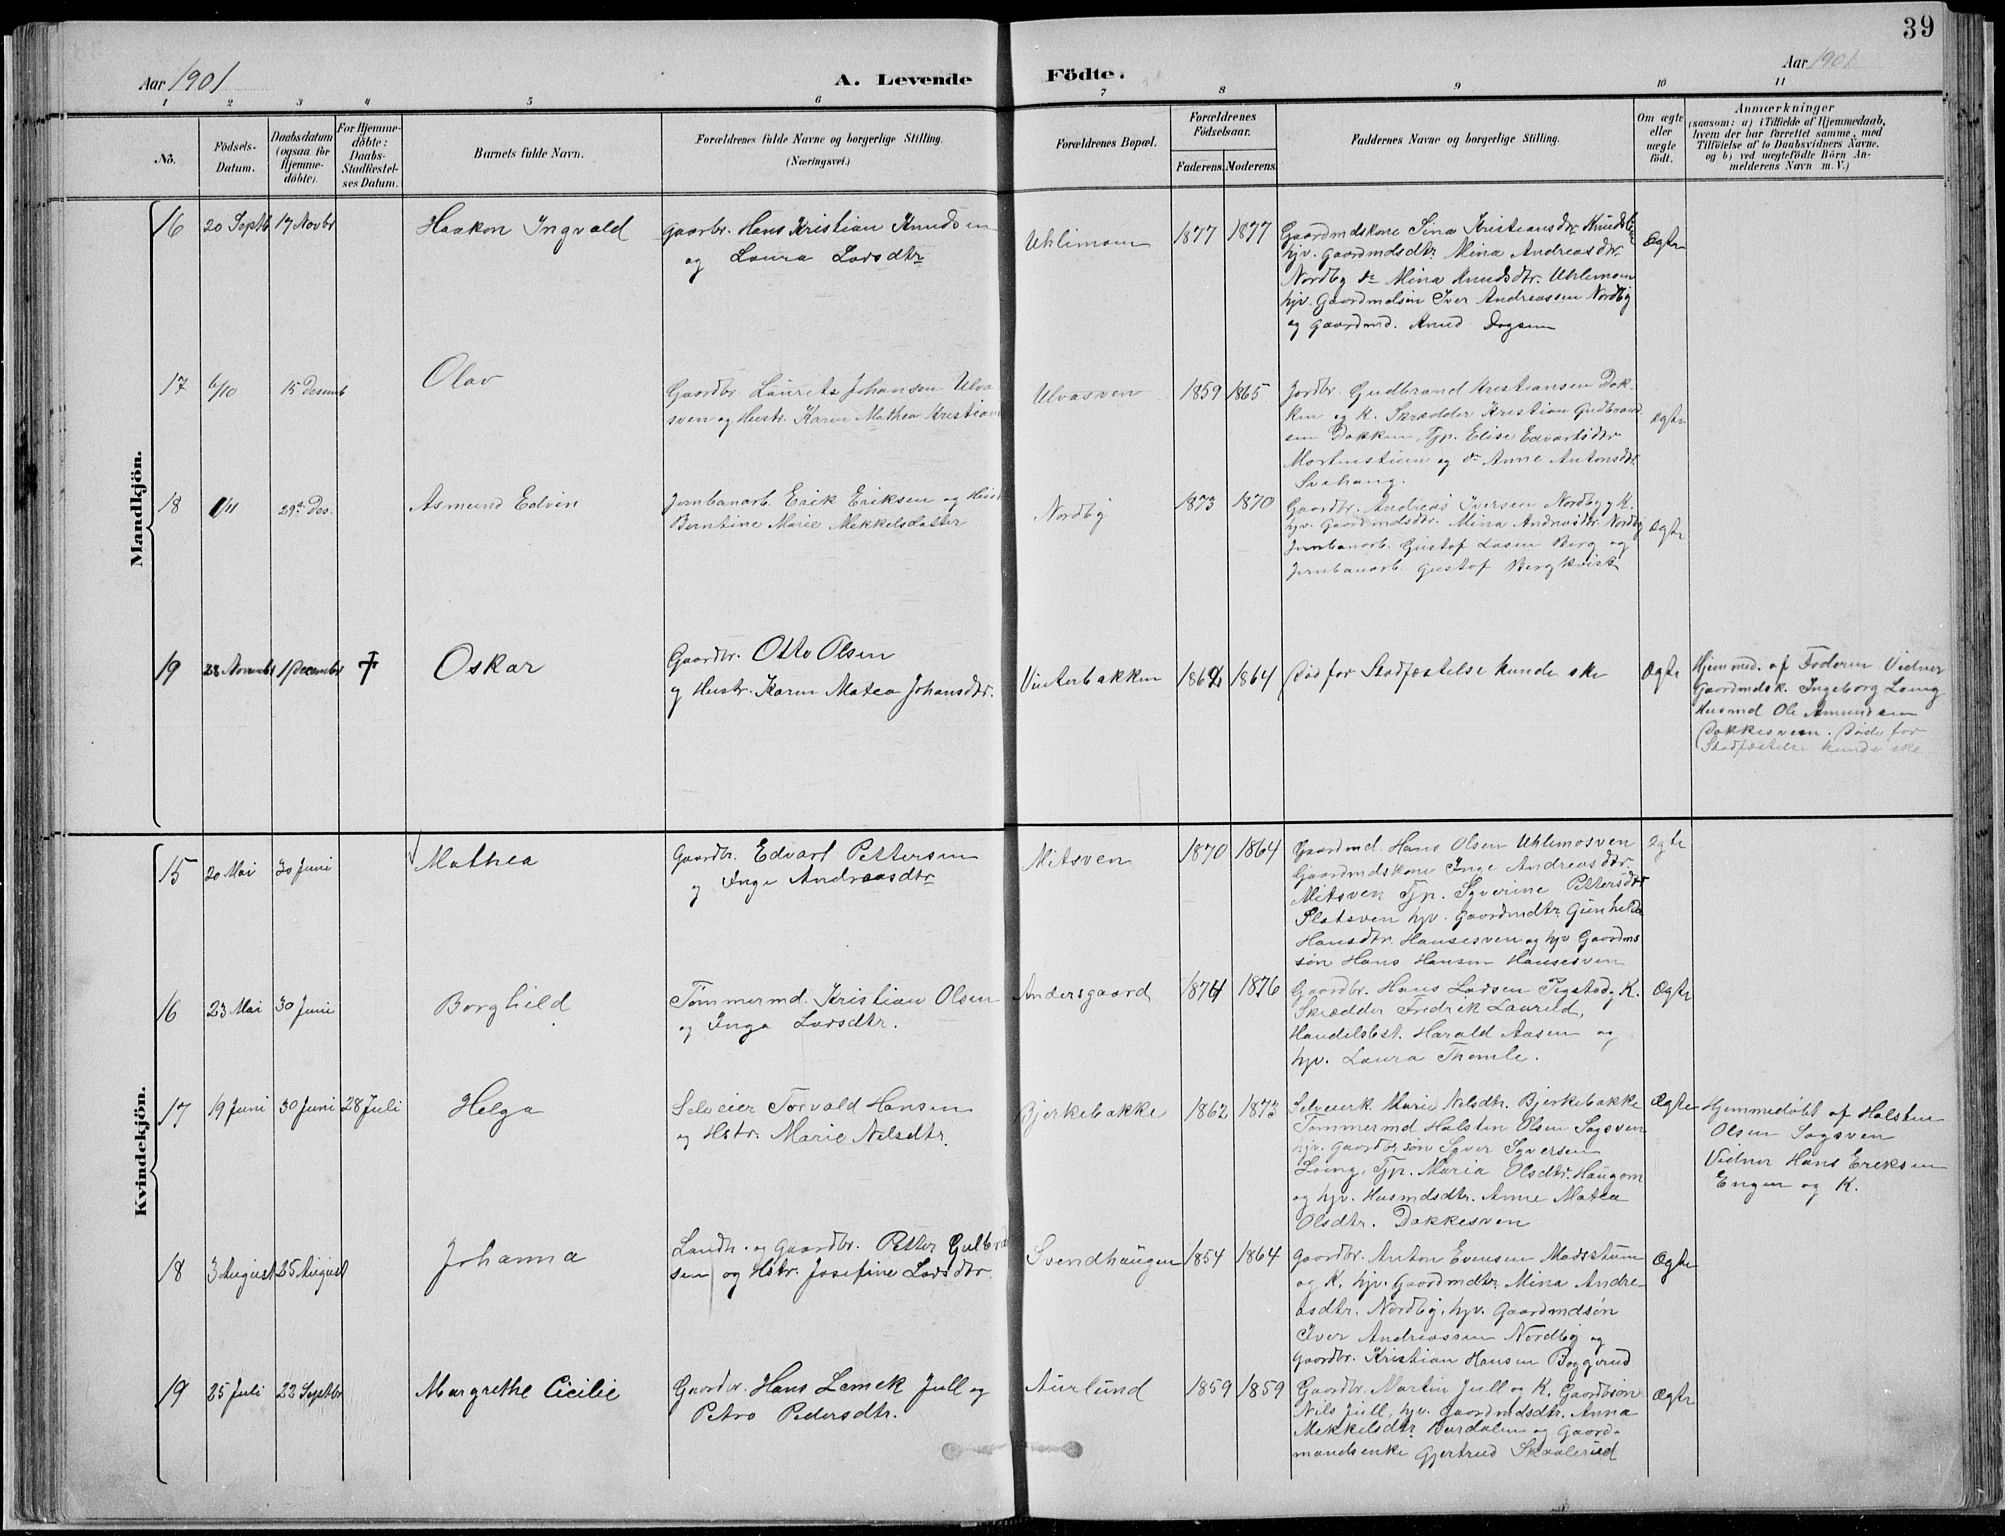 39
Aar 1901
A. Levende Födte.
Aar 1901
1 2 3 4 5 6 7 8 9 10 11
No.
Födsels-
Datum.
Daabsdatum
(ogsaa for
Hjemme-
döbte).
For Hjemme-
döbte:
Daabs-
Stadfæstel-
ses Datum.
Barnets fulde Navn.
Forældrenes fulde Navne og borgerlige Stilling.
(Næringsvei.)
Forældrenes Bopæl.
Forældrenes
Födselsaar.
Faderens. Moderens.
Faddernes Navne og borgerlige Stilling.
Om ægte
eller
uægte
födt.
Anmærkninger
(saasom: a) i Tilfælde af Hjemmedaab,
hvem der har forrettet samme, med
Tilföielse af to Daabsvidners Navne.
og b) ved uægtefödte Börn An-
melderens Navn m. V.)
Mandkjön.
16 20 Septb 17 Novbr
Haakon Ingvald
Gaarbr. Hans Kristian Knudsen
og Laura Larsdtr
Uhlimoen
1877 1877
Gaardmdskone Sina Kristiansdtr
hjv. Gaardmdsdtr Mina Andreasdtr
Nordby dº Mina Knudsdtr. Uhlimoen
hjv. Gaardmdsøn Iver Andreassen Nordby
og Gaardmd. Knud Dagsen
Ægte
17 6/10 15 Desemb
Olav
Gaardbr. Laurits Johansen Ulva
sven og Hustr. Karen Mathea Kristian
Ulvasven
1859 1865
Jordbr. Gudbrand Kristiansen Dok-
ken og K. Skrædder Kristian Gudbrand
sen Dokken, Tjp. Elise Edvartsdtr
og dº Anne Antonsdtr.
Ægte
18 29de Des.
Asmund Edvin
Jernbanarb. Erik Eriksen og Hust
Berntine Marie Mikkelsdatter
Nordby
1873 1870
Gaardbr. Andreas Iversen Nordby og K.
hjv. Gaardmdsdtr. Mina Andreasdtr Nordby
Jernbanarb. Gustaf Lasen Berg og
Jernbanarb. Gustof Bergkvist
Ægte
19 28 Novembr 1 December
Oskar
Gaardbr. Otto Olsen
og Hustr. Karen Matea Johansdtr.
Vinterbakken
1862 1864
Død før Stadfæstelse kunde ske
Ægte
Hjemmed. af Faderen Vidner
Gaardmdsk. Ingeborg Loeng
Husmd Ole Amundsen
Dokkesveen. Døde før
Stadfæstelse kunde ske
Kvindekjön.
15 20 Mai 30 Juni
Mathea
Gaardbr. Edvart Pettersen
og Inge Andreasdtr
Mitsven
1870 1864
Gaardmd Hans Olsen Uhlimosven
Gaardmdskone Inge Andreasdtr
Mitsven Tjp. Syverine Pettersdtr
Slatsven hjv. Gaardmdtr Gunhilde
Hansdtr. Hansesven og hjv Gaardms
søn Hans Hansen Hansesven
Ægte
16 23 Mai 30 Juni
Borghild
Tømmermd. Kristian Olsen
og Inga Larsdtr.
Andersgaard
1874 1876
Gaardbr. Hans Larsen og K.
Skrædder Fredrik Laurild,
Handelsbest. Harald Aasen og
hjv. Laura Thomle.
Ægte
17 19 Juni 30 Juni 28 Juli
Helga
Selveier Torvald Hansen
og Hstr. Marie Nilsdtr.
Bjerkebakke
1862 1873
Selveierk. Marie Nilsdtr. Bjerkebakke
Tømmermd Halsten Olsen Sagsven
hjv. Gaardbr,søn Syver Syversen
Loeng. Tjp. Maria Olsdtr. Haugom
og hjv. Husmdsdtr. Anne Matea
Olsdtr. Dokkesven
Ægte
Hjemmedøbt af Halsten
Olsen Sagsven
Vidner Hans Eriksen
Engen og K.
18 3 August 25 August
Johanna
Landh. og Gaardbr. Petter Gulbrand
sen og Hstr. Josefine Larsdtr.
Svendhaugen
1854 1864
Gaardbr. Anton Evensen Madsstuen
og K, hjv. Gaardmdtr. Mina Andre-
asdtr. Nordby, hjv. Gaardmdsøn
Iver Andreassen Nordby og
Gaardbr. Kristian Hansen Baggerud
Ægte
19 25 Juli 22 Septbr
Margrethe Cicilie
Gaardbr. Hans Lemek Jull og
Petra Pedersdtr.
Aurlund
1859 1859
Gaardbr. Martin Jull og K. Gaardbsøn
Nils Jull, hjv. Gaardmdsdtr. Anna
Mekkelsdtr og Gaard-
mandsenke Gjertrud Skoolerud
Ægte